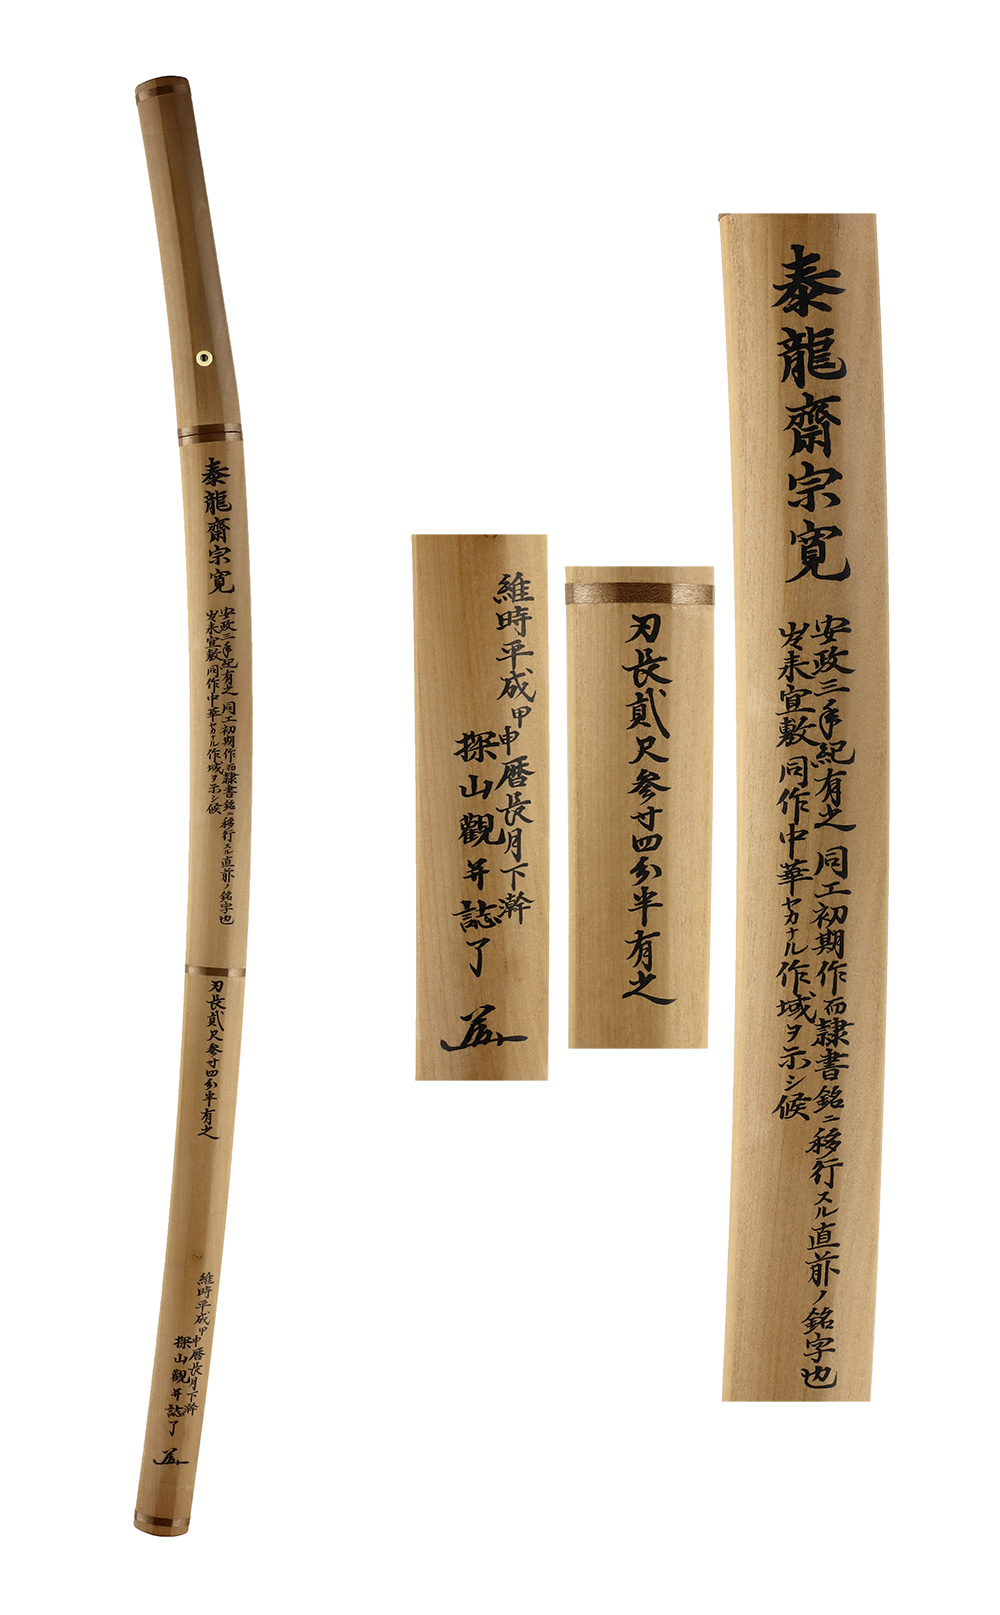 泰龍齋宗寛
安政三年紀有之 同工初期作而隷書銘ニ移行スル直前ノ銘字也
出来宣敷同作中華ヤカナル作域ヲ示シ候
刃長貮尺参寸四分半有之
維時平成甲申暦長月下澣
探山觀并誌了
泰龍齋宗寛
安政三年紀有之 同工初期作而隷書銘ニ移行スル直前ノ銘字也
出来宣敷同作中華ヤカナル作域ヲ示シ候
刃長貮尺参寸四分半有之
維時平成甲申暦長月下澣
探山觀并誌了